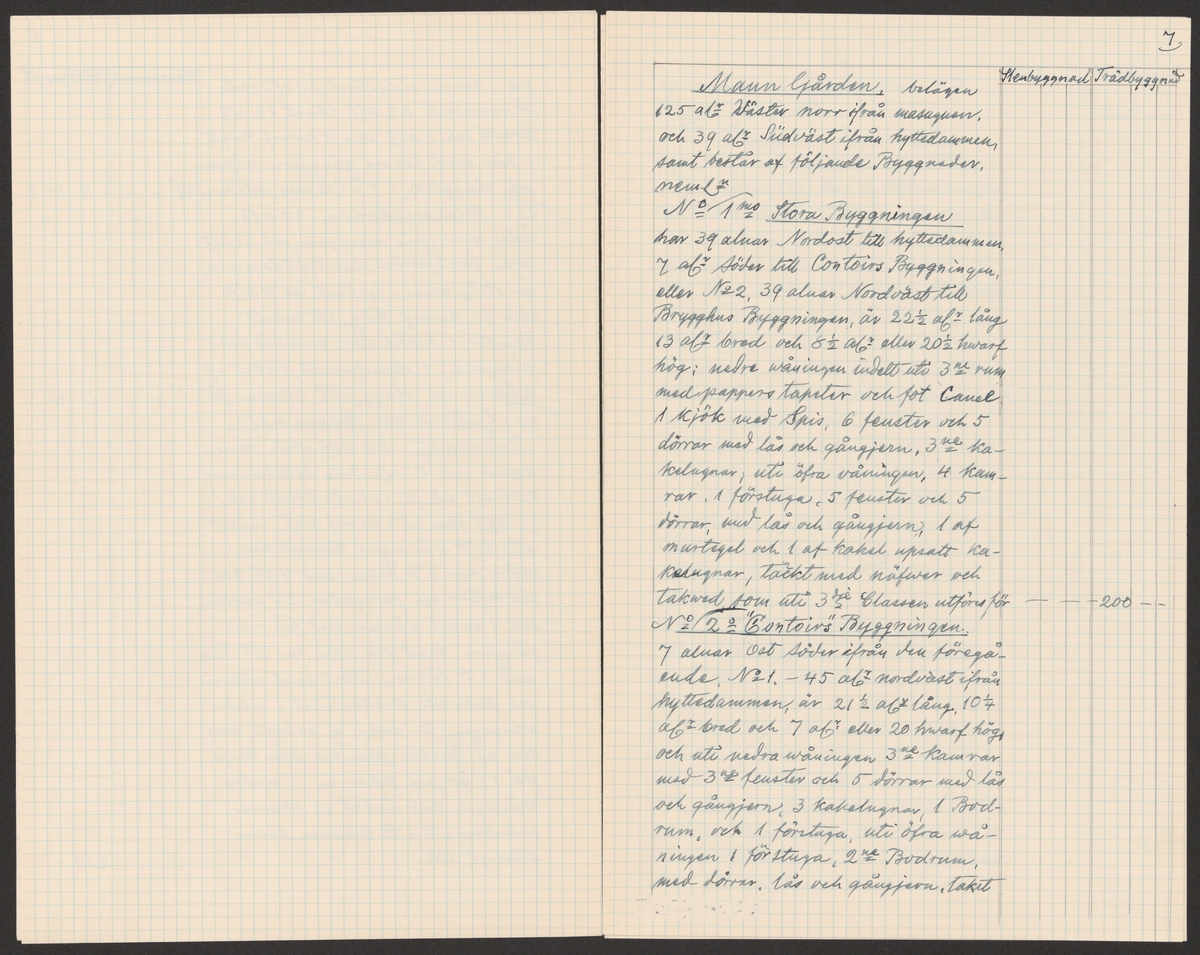 7
Stenbyggnad Trädbyggnad
Mann Gården, belägen
125 alr Väster norr ifrån masugnen,
och 39 alr Südväst ifrån hyttedammen,
samt består af följande Byggnader,
neml.n
No 1mo Stora Byggningen
har 39 alnar Nordost till hyttedammen,
7 alr söder till Contoirs Byggningen,
eller No 2, 39 alnar Nordväst till
Brygghus Byggningen, är 22½ alr lång
13 alr bred och 8½ alr eller 20½ hwarf
hög; nedre wåningen indelt uti 3ne rum
med pappers tapeter och fot Canel
1 kjök med Spis, 6 fenster och 5
dörrar med lås och gångjern, 3ne ka-
kelugnar, uti öfra våningen, 4 kam-
rar, 1 förstuga, 5 fenster och 5
dörrar, med lås och gångjern, 1 af
murtegel och 1 af kakel upsatt ka-
kelugnar, täckt med näfwer och
takwed som uti 3dje Classen utföres för — — — 200 — —
No 2o "Contoirs" Byggningen.
7 alnar Ost söder ifrån den föregå-
ende, No 1. – 45 alr nordväst ifrån
hyttedammen, är 21½ alr lång, 10¼
alr bred och 7 alr eller 20 hwarf hög,
och uti nedra wåningen 3ne kamrar
med 3ne fenster och 5 dörrar med lås
och gångjern, 3 kakelugnar, 1 Bod-
rum, och 1 förstuga, uti öfra wå-
ningen 1 förstuga, 2ne Bodrum,
med dörrar, lås och gångjern, taket